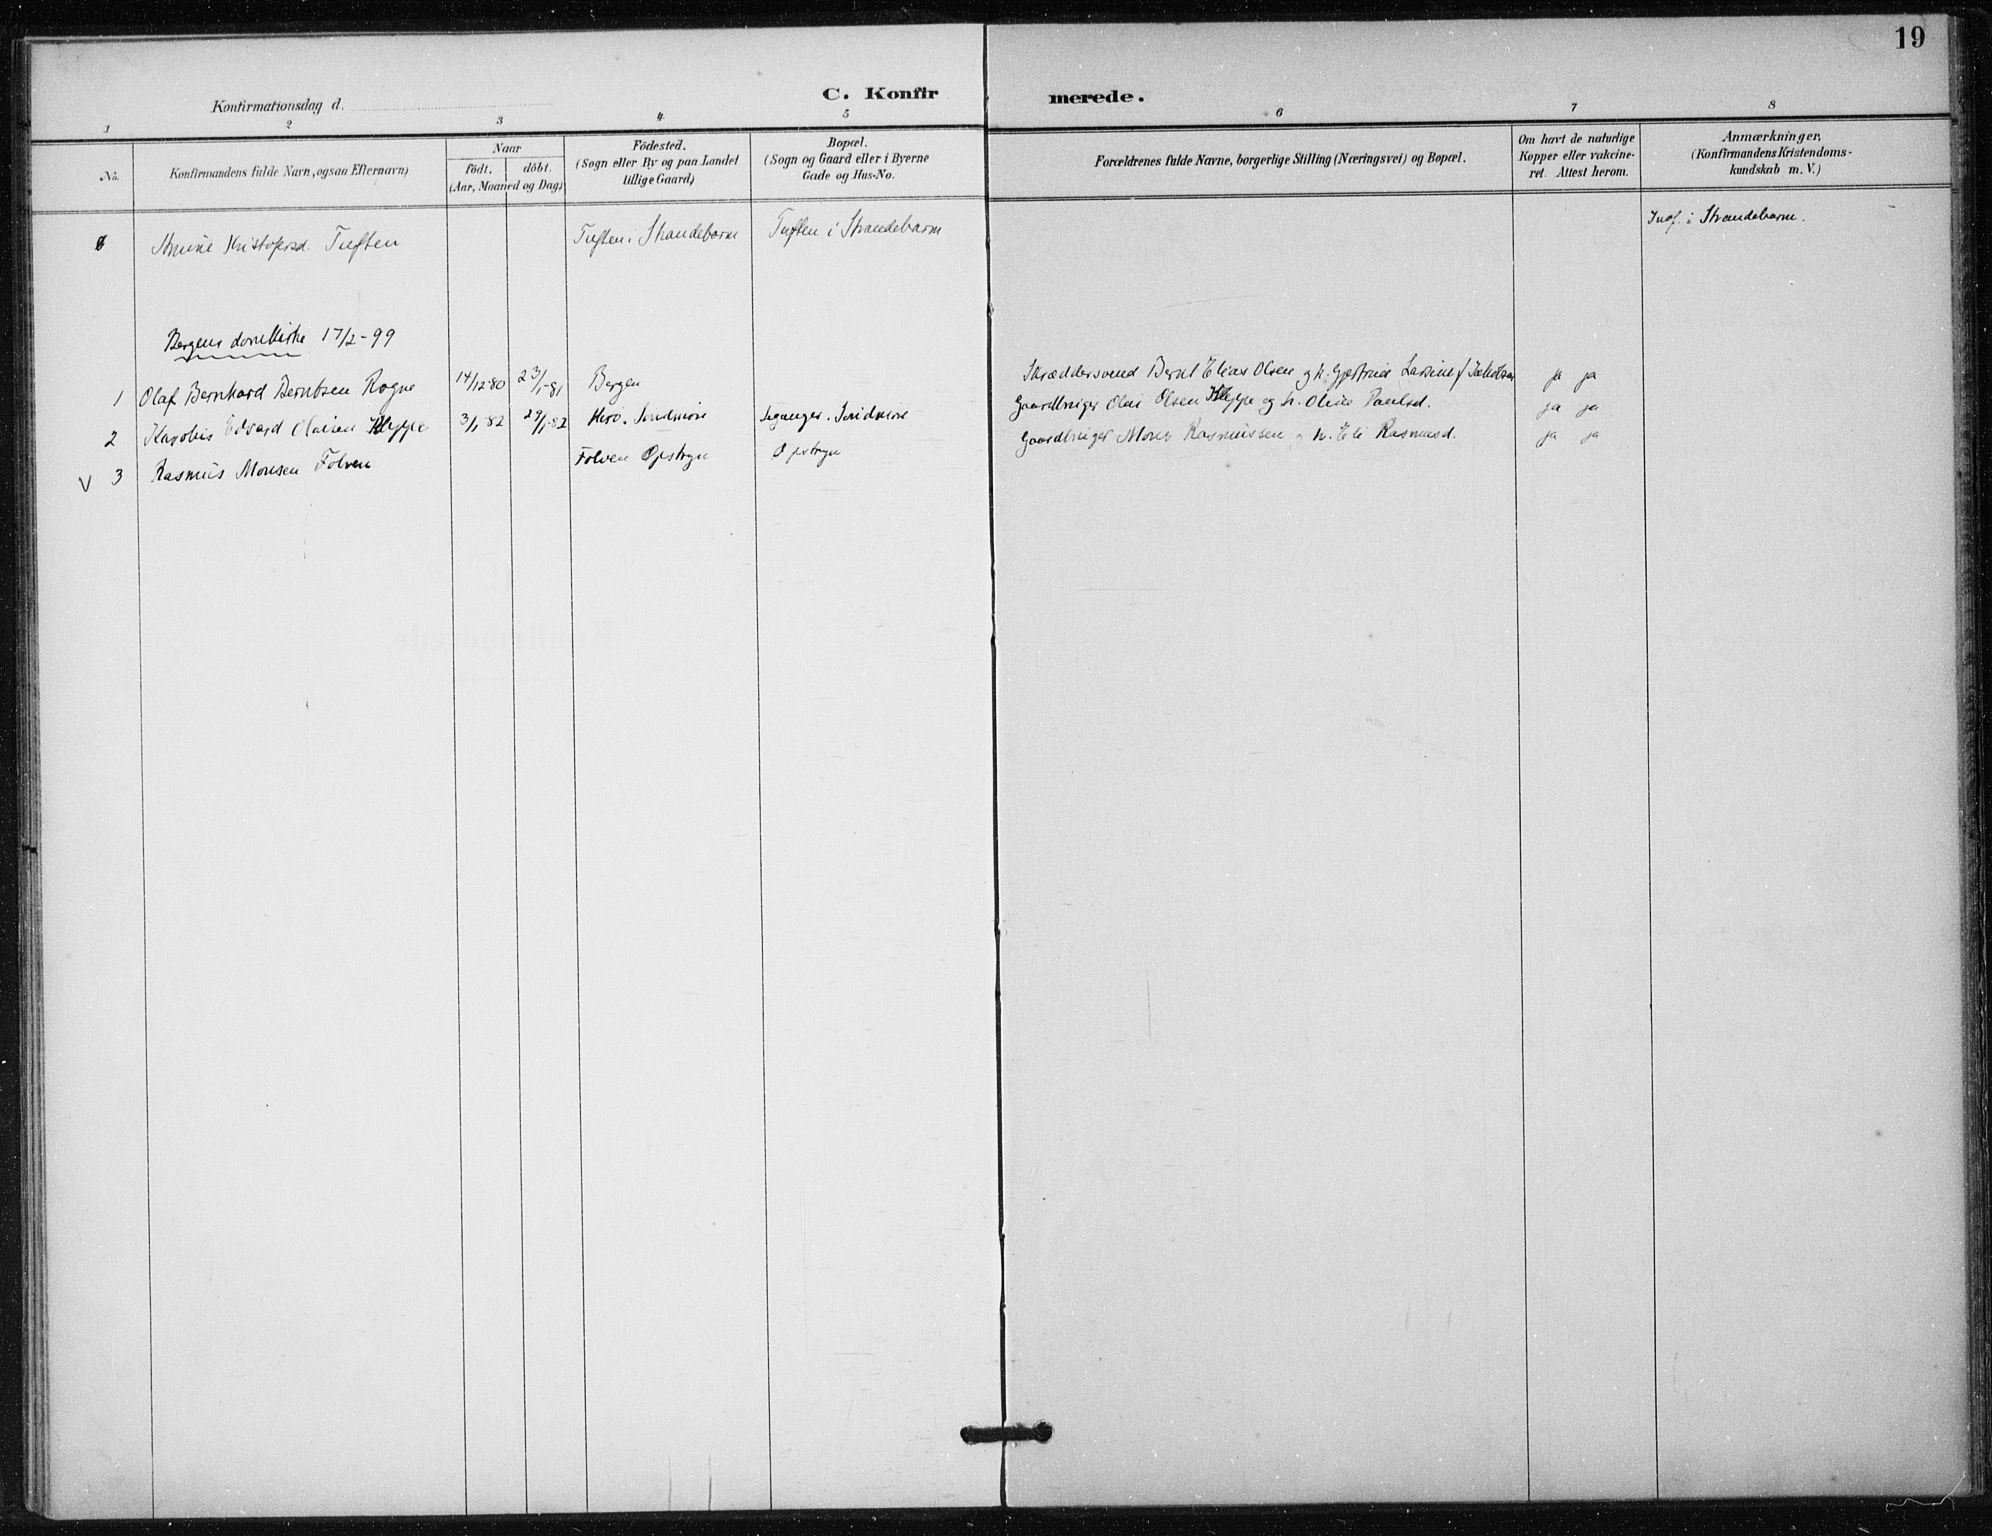 19
Konfirmationsdag d.
C. Konfirmerede.
1 2 3 4 5 6 7 8
No.
Konfirmandens fulde Navn, ogsaa Efternavn)
Naar
födt. döbt.
(Aar, Maaned og Dag)
Födested.
(Sogn eller By og paa Landet
tillige Gaard)
Bopæl.
(Sogn og Gaard eller i Byerne
Gade og Hus-No.
Forældrenes fulde Navne, borgerlige Stilling (Næringsvei) og Bopæl.
Om havt de naturlige
Kopper eller vakcine-
ret. Attest herom.
Anmærkninger.
(Konfirmandens Kristendoms-
kundskab m. V.)
Kristofersd. Tuften Tuften i Strandebarm Tuften i Strandebarm i Strandebarm.
Bergens domkirke 17/2-99
1 Olaf Bernhard Berntsen Rogne 14/12-80 23/1-81 Bergen Skræddersvend Bernt Elias Olsen og h. Larsine ja ja
2 Edvard Olaisen Kleppe 3/1-82 29/1-82 Herö. Söndmöre Söndmöre Gaardbruger Olai Olsen Kleppe og h. Oline Paulsd. ja ja
V 3 Rasmus Monsen Folven Folven Opstryn Opstryn Gaardbruger Mons Rasmussen og h. Eli Rasmusd. ja ja